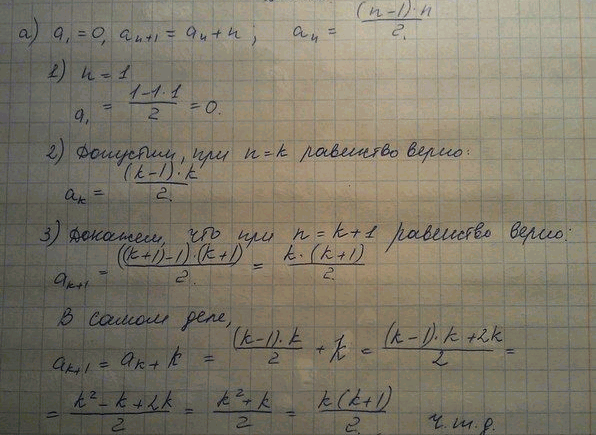 а) a₁ = 0, aₙ₊₁ = aₙ + n; aₙ = (n-1)·n / 2.
1) n = 1
a₁ = 1-1·1 / 2 = 0.
2) Допустим, при n = k равенство верно:
aₖ = (k-1)·k / 2.
3) Докажем, что при n = k+1 равенство верно:
aₖ₊₁ = ((k+1)-1)·(k+1) / 2. = k·(k+1) / 2.
В самом деле,
aₖ₊₁ = aₖ + k = (k-1)·k / 2 + k = (k-1)·k + 2k / 2 =
= k² - k + 2k / 2 = k² + k / 2 = k(k+1) / 2. ч.т.д.